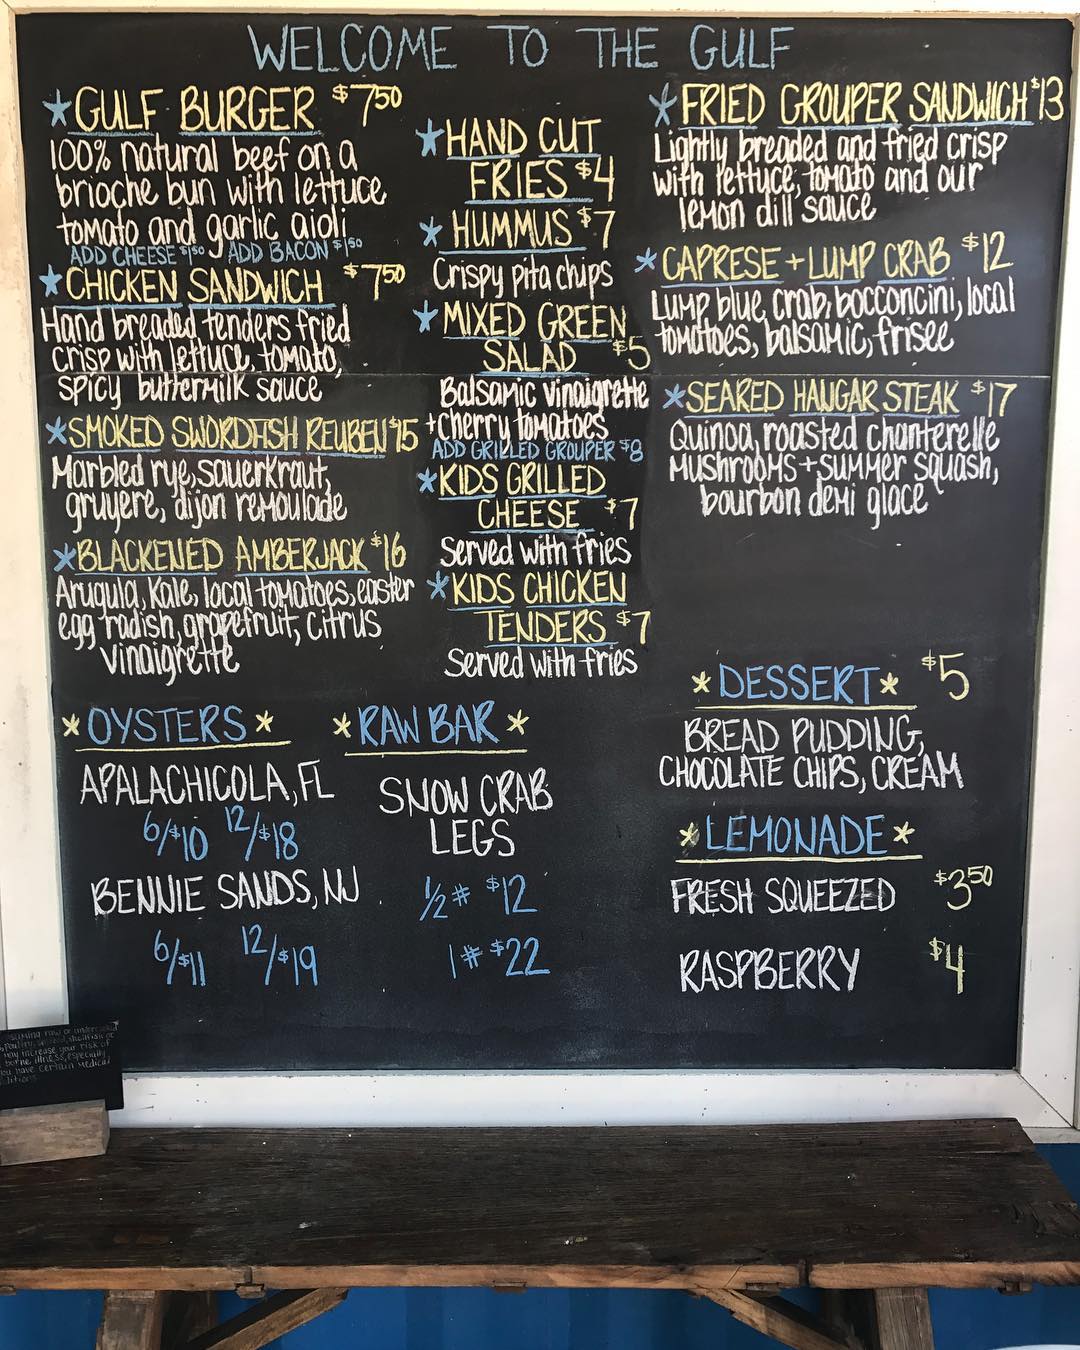 WELCOME TO THE GULF
*GULF BURGER $7.50
100% natural beef on a
brioche bun with lettuce
tomato and garlic aioli
ADD CHEESE $1.50 ADD BACON $1.50
*CHICKEN SANDWICH $7.50
Hand breaded tenders fried
crisp with lettuce, tomato,
spicy buttermilk sauce
*SMOKED SWORDFISH REUBEN $15
Marbled rye, sauerkraut,
gruyere, dijon remoulade
*BLACKENED AMBERJACK $16
Arugula, Kale, local tomatoes, easter
egg radish, grapefruit, citrus
vinaigrette
*HAND CUT
FRIES $4
*HUMMUS $7
Crispy pita chips
*MIXED GREEN
SALAD $5
Balsamic vinaigrette
+Cherry tomatoes
ADD GRILLED GROUPER $8
*KIDS GRILLED
CHEESE $7
Served with fries
*KIDS CHICKEN
TENDERS $7
Served with fries
*FRIED GROUPER SANDWICH $13
Lightly breaded and fried crisp
with lettuce, tomato and our
lemon dill sauce
*CAPRESE + LUMP CRAB $12
Lump blue, crab, bocconcini, local
tomatoes, balsamic, frisee
*SEARED HANGAR STEAK $17
Quinoa, roasted chanterelle
mushrooms + summer squash,
bourbon demi glace
*OYSTERS*
APALACHICOLA, FL
6/$10 12/$18
BENNIE SANDS, NJ
6/$11 12/$19
*RAW BAR*
SNOW CRAB
LEGS
1/2# $12
1# $22
*DESSERT* $5
BREAD PUDDING,
CHOCOLATE CHIPS, CREAM
*LEMONADE*
FRESH SQUEEZED $3.50
RASPBERRY $4
raw or
may increase your risk of
borne illness, especially
you have certain medical